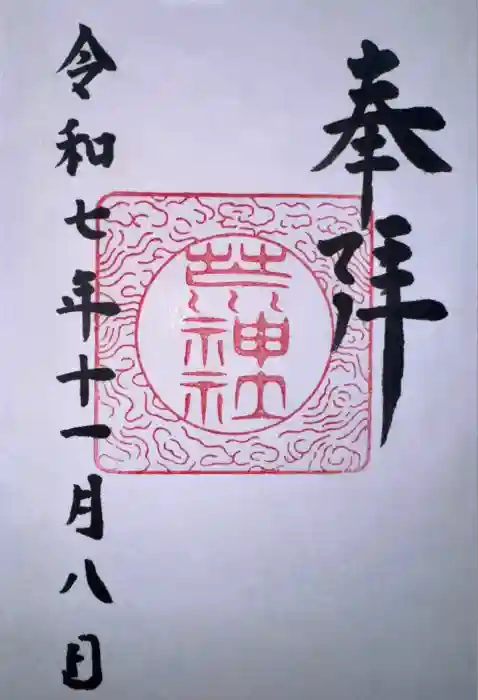 奉拝
神社
令和七年十一月八日